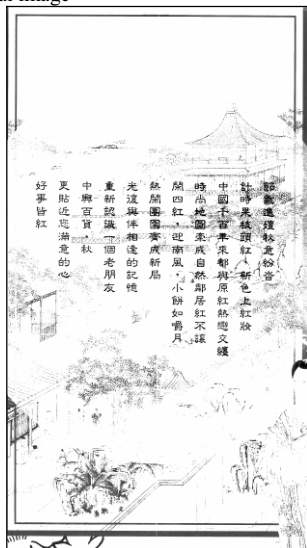 計時果枝頭紅，新色上紅妝
中國千百年來都與原紅熱戀交纏
時尚地圖束成自然鄰居紅不讓
鬧四紅，迎南風，小餅如嚼月
熱鬧團團齊成新局
光這與伴相逢的記憶
重新認識一個老朋友
中興百貨，秋
更貼近您滿意的心
好事皆紅